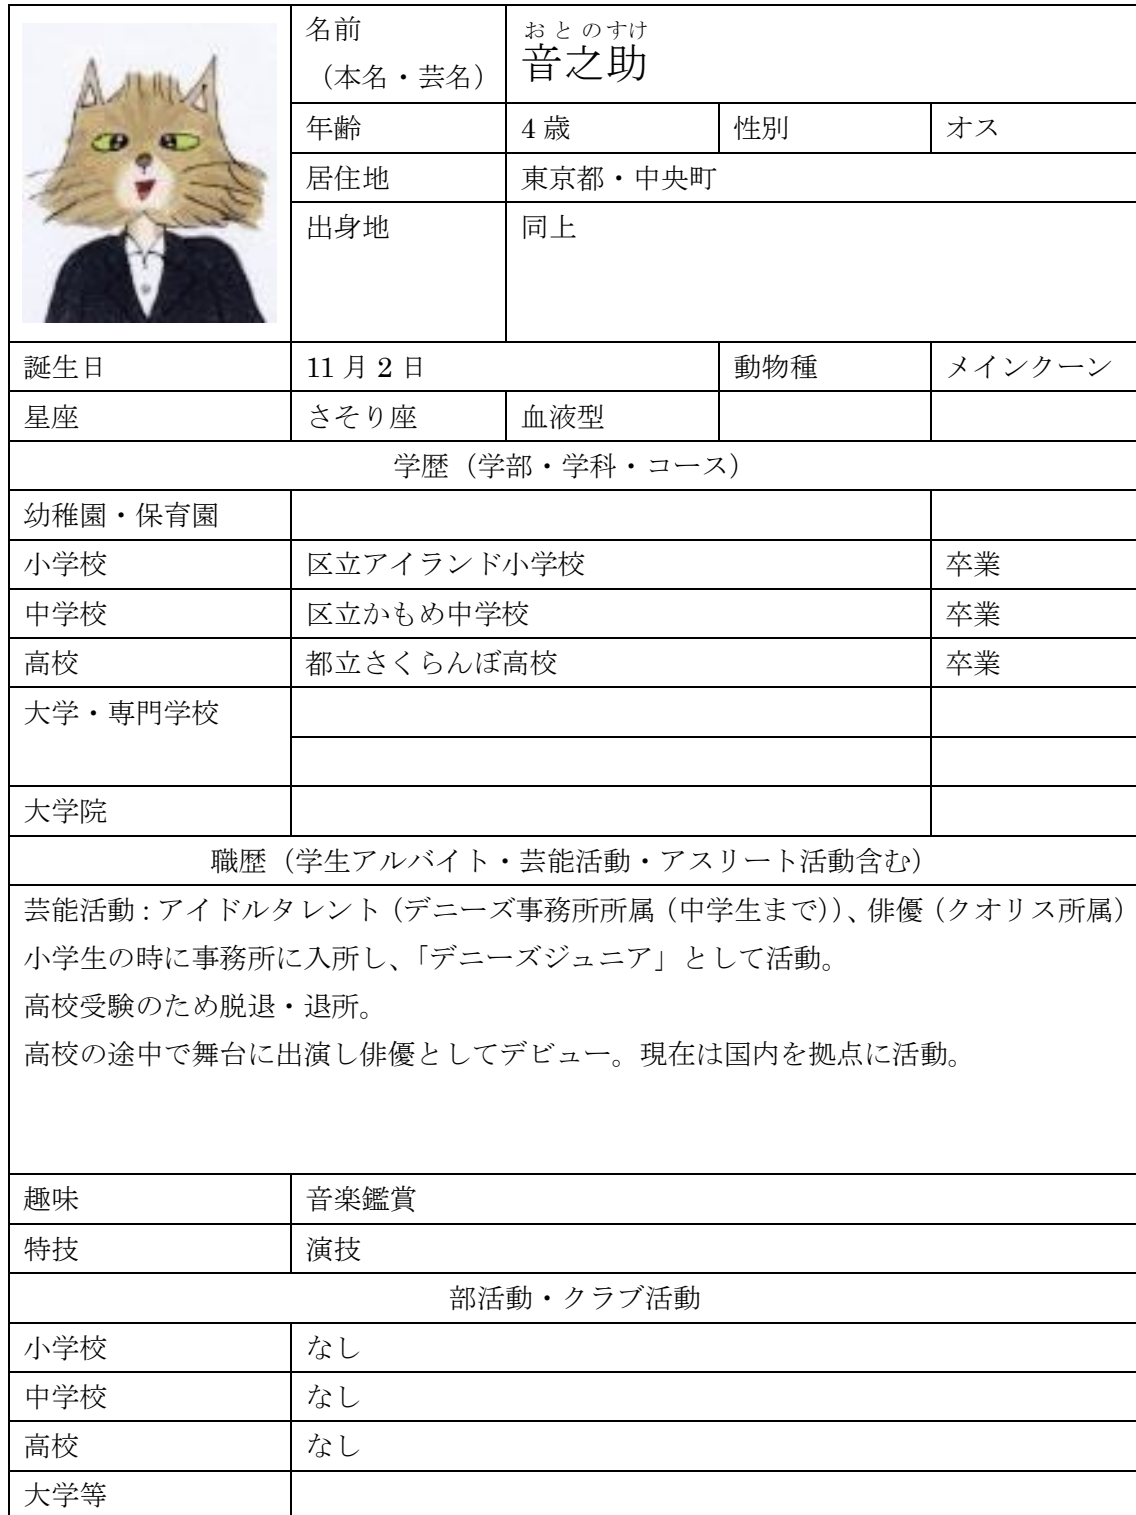 名前
（本名・芸名）
おとのすけ
音之助
年齢 4歳 性別 オス
居住地 東京都・中央町
出身地 同上
誕生日 11月2日 動物種 メインクーン
星座 さそり座 血液型
学歴（学部・学科・コース）
幼稚園・保育園
小学校 区立アイランド小学校 卒業
中学校 区立かもめ中学校 卒業
高校 都立さくらんぼ高校 卒業
大学・専門学校
大学院
職歴（学生アルバイト・芸能活動・アスリート活動含む）
芸能活動：アイドルタレント（デニーズ事務所所属（中学生まで））、俳優（クオリス所属）
小学生の時に事務所に入所し、「デニーズジュニア」として活動。
高校受験のため脱退・退所。
高校の途中で舞台に出演し俳優としてデビュー。現在は国内を拠点に活動。
趣味 音楽鑑賞
特技 演技
部活動・クラブ活動
小学校 なし
中学校 なし
高校 なし
大学等